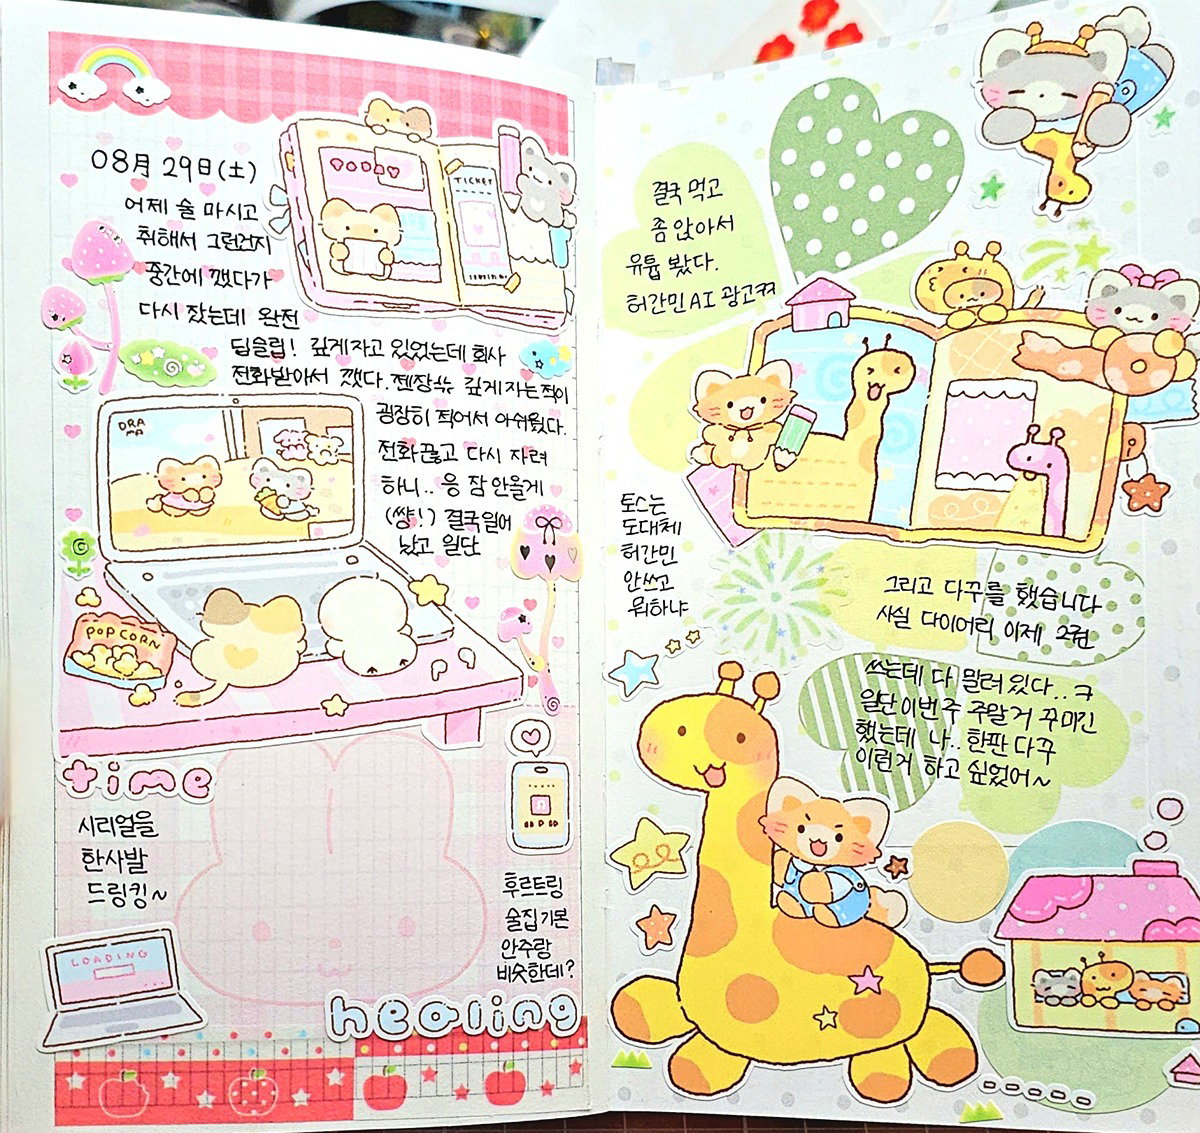 08月 29日(土)
어제 술 마시고
취해서 그런건지
중간에 깼다가
다시 잤는데 완전
딥슬립! 깊게 자고 있었는데 회사
전화받아서 깼다. 젠장ㅆ 깊게 자는 적이
굉장히 적어서 아쉬웠다.
전화끊고 다시 자려
하니.. 응 잠 안올게
(썅!) 결국 일어
났고 일단
TICKET
DRA
MA
POPCORN
time
시리얼을
한사발
드링킹~
LOADING
후르트링
술집 기본
안주랑
비슷한데?
healing
결국 먹고
좀 앉아서
유튭 봤다.
허간민 AI 광고ㅋㅋ
토스는
도대체
허간민
안쓰고
뭐하냐
그리고 다꾸를 했습니다
사실 다이어리 이제 2권
쓰는데 다 밀려 있다..ㅋ
일단 이번 주 주말거 꾸미긴
했는데 나.. 한판 다꾸
이런거 하고 싶었어~